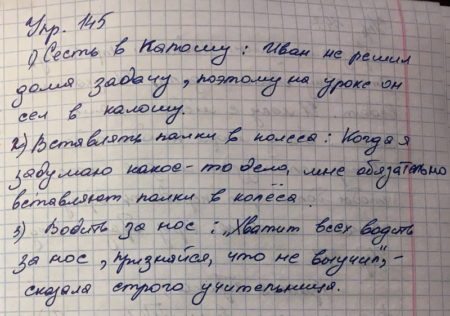 Упр. 145
1) Сесть в калошу: Иван не решил
дома задачу, поэтому на уроке он
сел в калошу.
2) Вставлять палки в колеса: Когда я
задумаю какое-то дело, мне обязательно
вставляют палки в колёса
3) Водить за нос: „Хватит всех водить
за нос, признайся, что не выучил", -
сказала строго учительница.